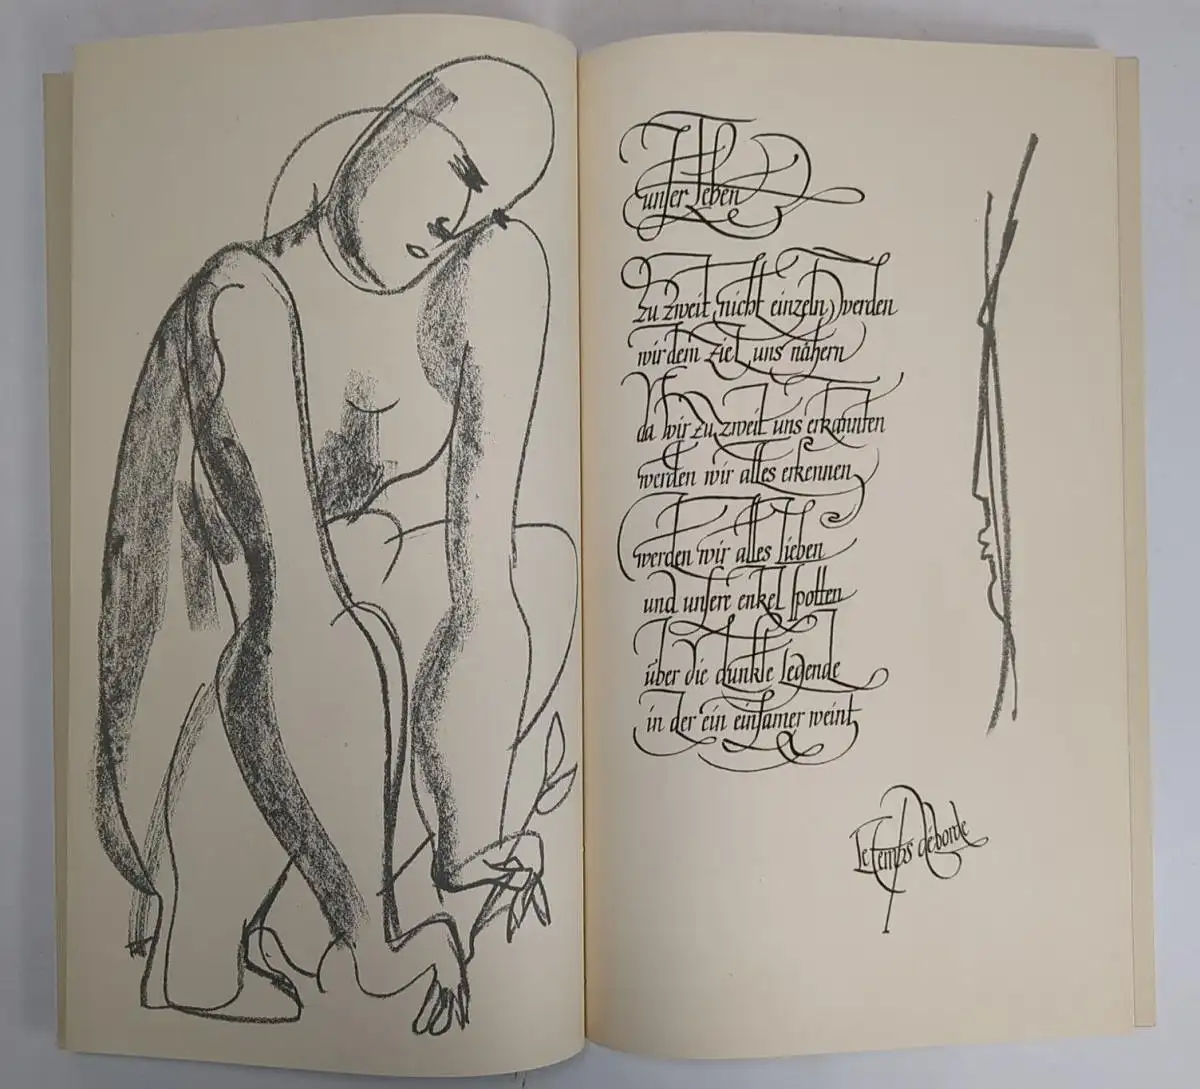 unser leben
zu zweit nicht einzeln werden
wir dem ziel uns nähern
da wir zu zweit uns erkannten
werden wir alles erkennen
werden wir alles lieben
und unsere enkel spotten
über die dunkle legende
in der ein einsamer weint
le temps déborde